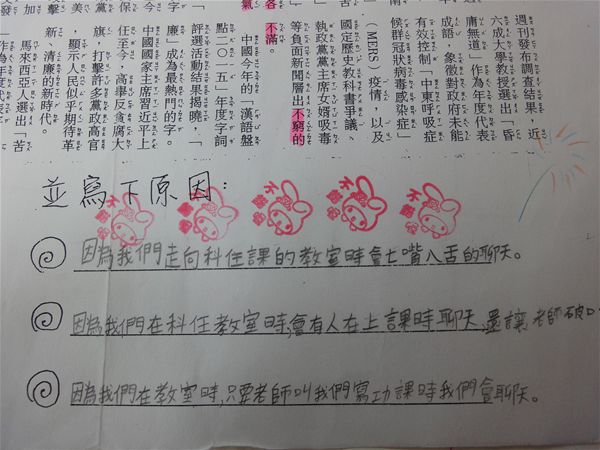 週刊發布調查結果，近
六成大學教授選出「昏
庸無道」作為年度代表
成語，象徵對政府未能
有效控制「中東呼吸症
候群冠狀病毒感染症」
（MERS）疫情，以及
國定歷史教科書爭議、
執政黨黨主席女婿吸毒
等負面新聞層出不窮的
不滿。
中國今年的「漢語盤
點二○一五」年度字詞
評選活動結果揭曉，「
廉」成為最熱門的字。
中國國家主席習近平上
任至今，高舉反貪腐大
旗，打擊許多黨政高官
，顯示人民似乎期待革
新、清廉的新時代。
馬來西亞人選出「苦
並寫下原因：
因為我們走向科任課的教室時會七嘴八舌的聊天。
因為我們在科任教室時，會有人在上課時聊天，還讓老師破口
因為我們在教室時，只要老師叫我們寫功課時我們會聊天。